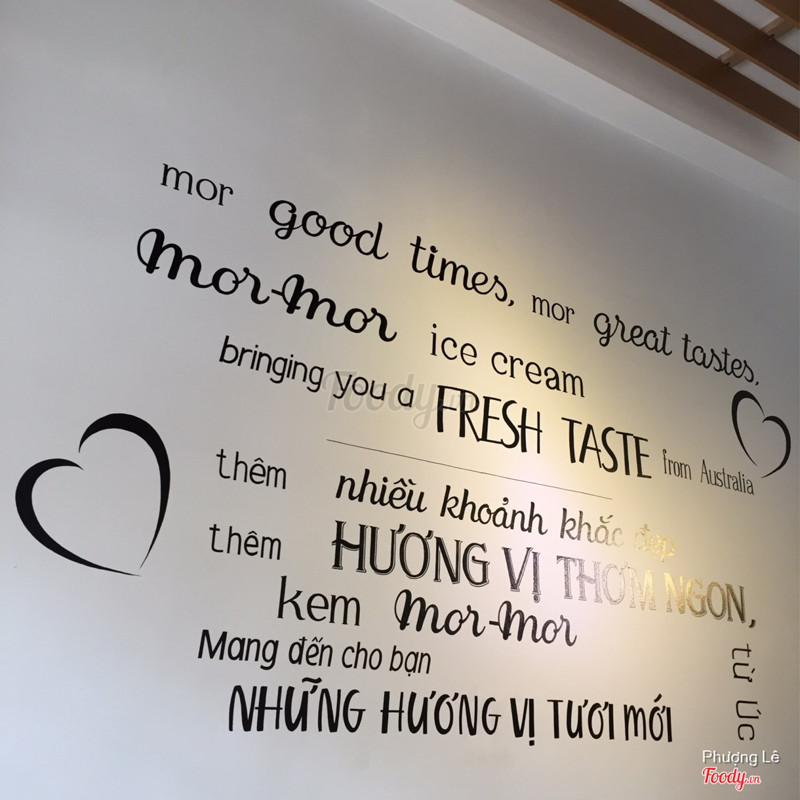 mor good times, mor great tastes,
mor-mor ice cream
bringing you a FRESH TASTE from Australia
thêm nhiều khoảnh khắc đẹp
thêm HƯƠNG VỊ THƠM NGON,
kem mor-mor
Mang đến cho bạn
NHỮNG HƯƠNG VỊ TƯƠI MỚI
từ Úc
Foody.vn
Phượng Lê
Foody.vn